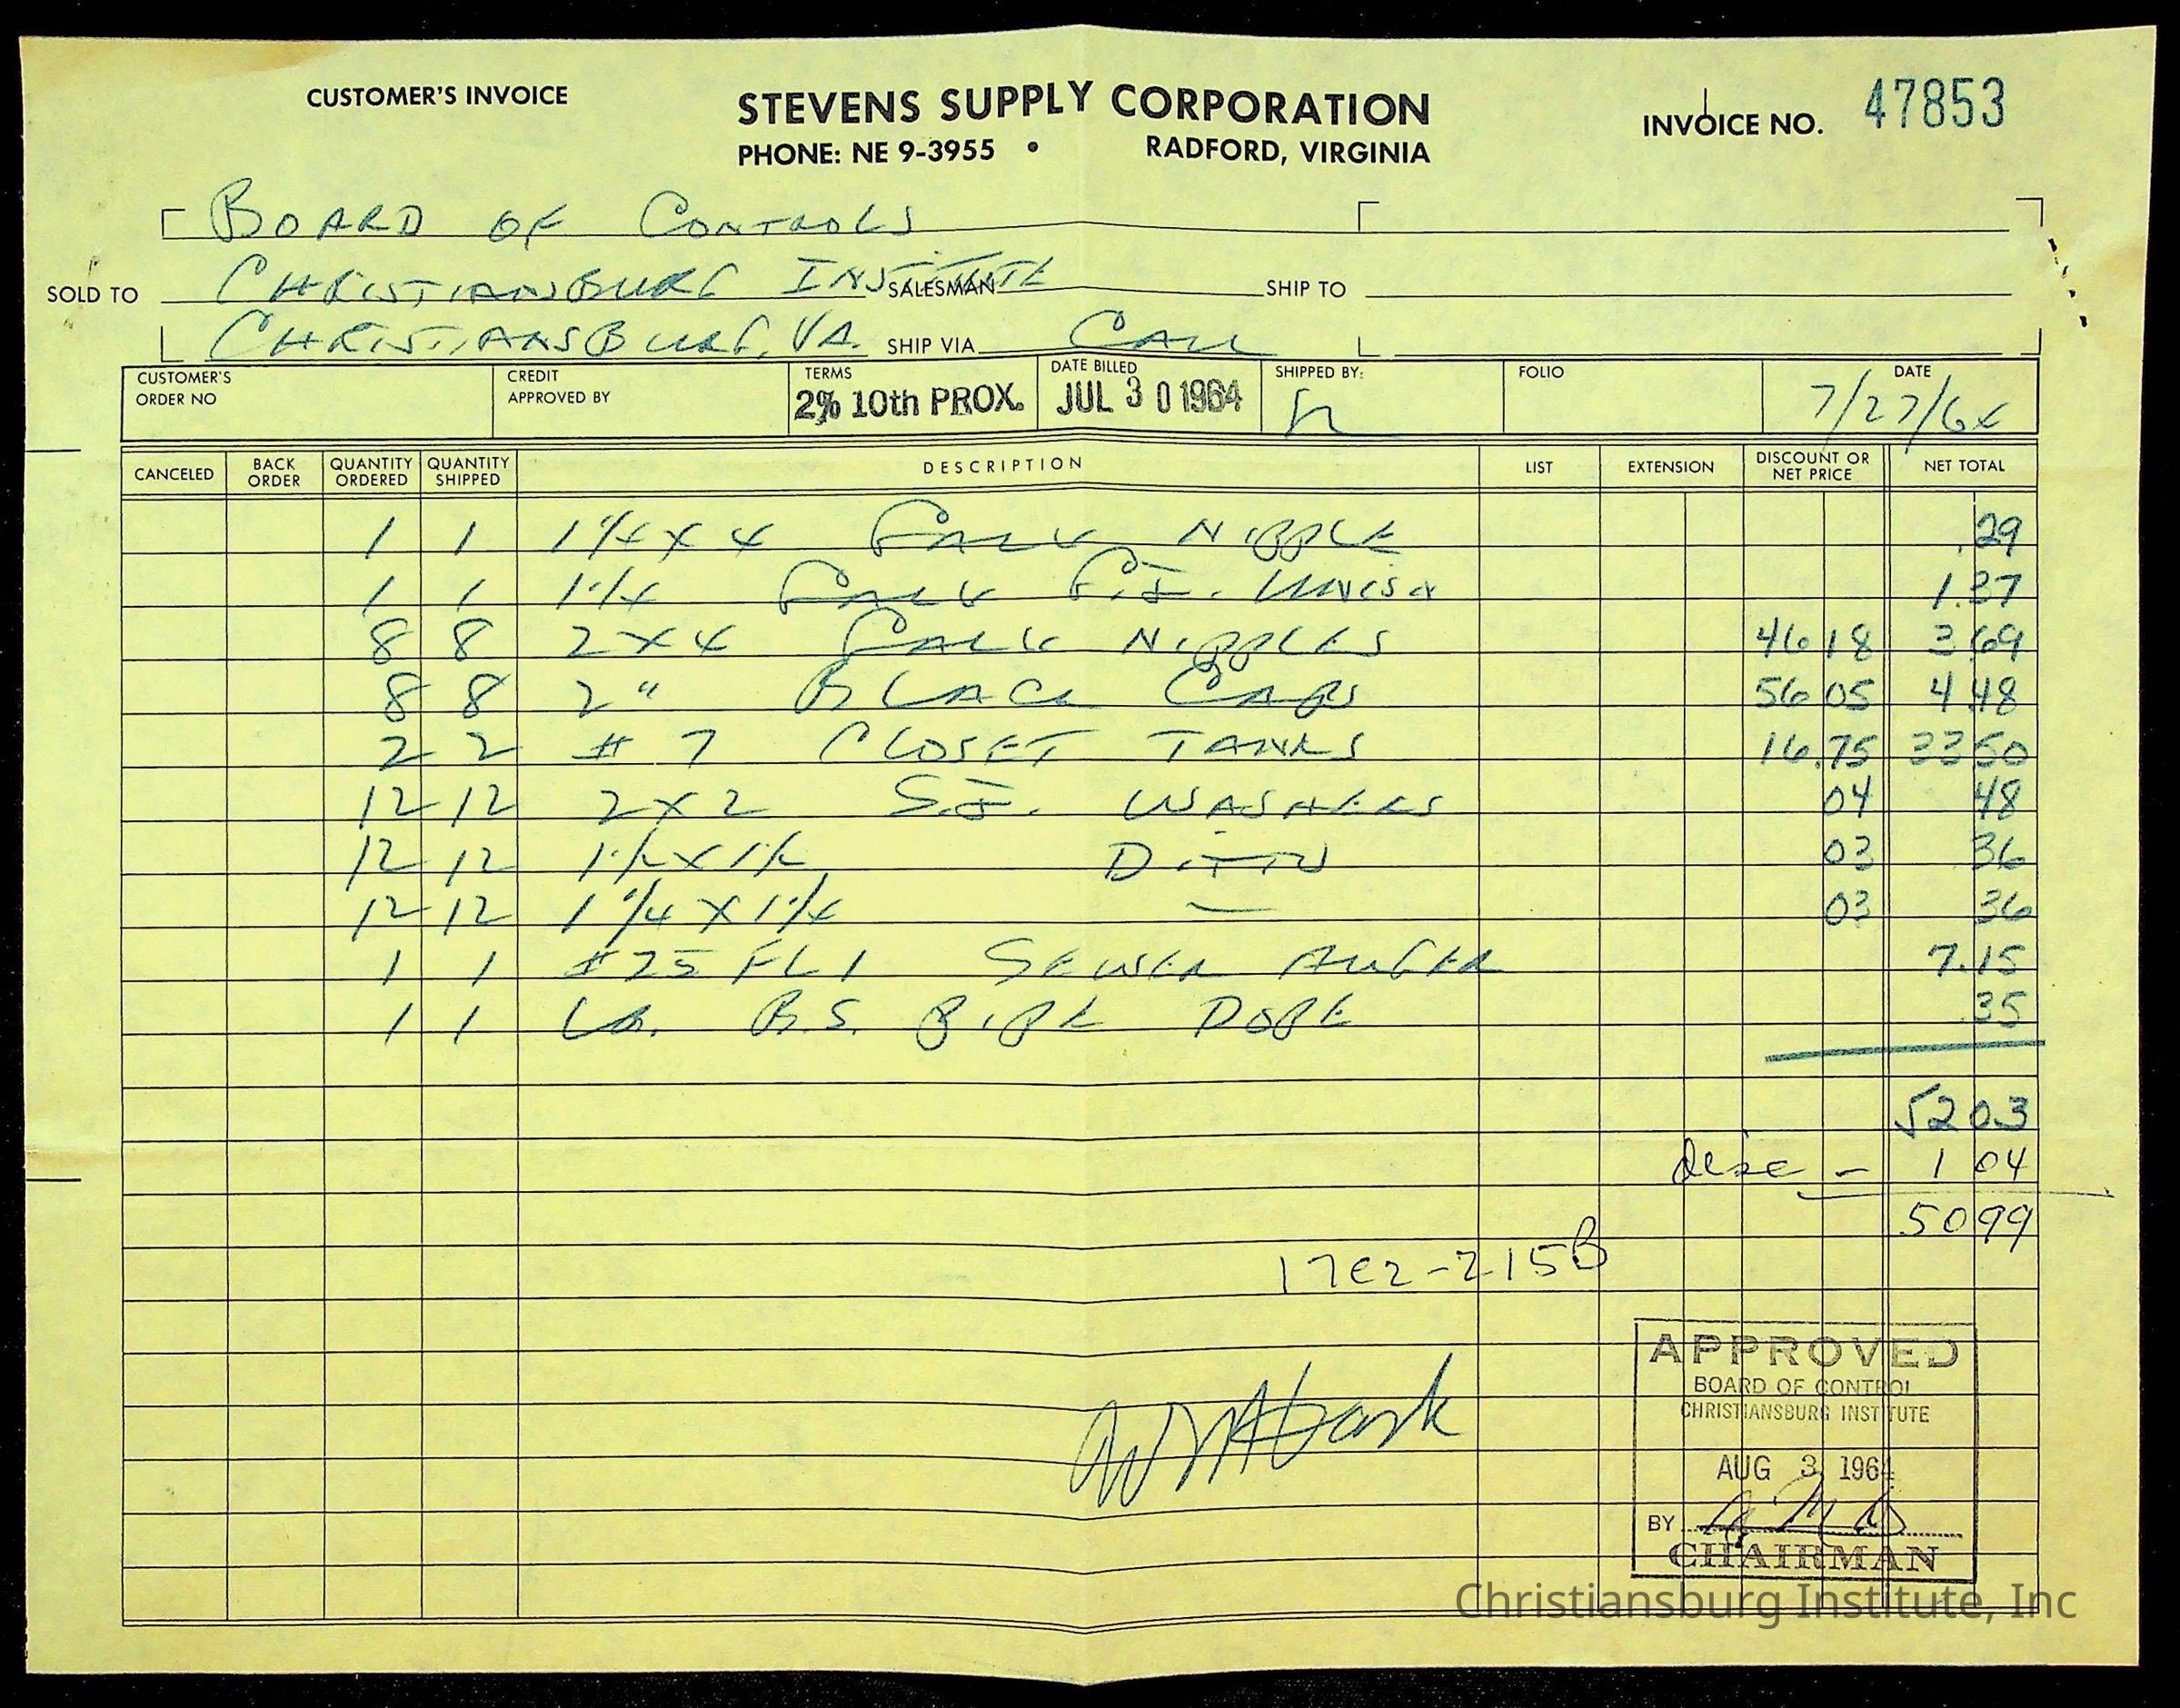 CUSTOMER'S INVOICE
STEVENS SUPPLY CORPORATION
PHONE: NE 9-3955 • RADFORD, VIRGINIA
INVOICE NO. 47853
BOARD OF CONTROLS
SOLD TO CHRISTIANSBURG INSTITUTE SALESMAN SHIP TO
CHRISTIANSBURG, VA. SHIP VIA CALL
CUSTOMER'S ORDER NO CREDIT APPROVED BY TERMS 2% 10th PROX. DATE BILLED JUL 30 1964 SHIPPED BY: FOLIO DATE 7/27/64
CANCELED BACK ORDER QUANTITY ORDERED QUANTITY SHIPPED DESCRIPTION LIST EXTENSION DISCOUNT OR NET PRICE NET TOTAL
1 1 1 1/4 X 4 GALV NIPPLE .29
1 1 1 1/4 GALV G.J. UNION 1.37
8 8 2 X 4 GALV NIPPLES 46 18 3 69
8 8 2" BLACK CAPS 56 05 4 48
2 2 # 7 CLOSET TANKS 16.75 33 50
12 12 2 X 2 S.J. WASHERS 04 48
12 12 1 1/2 X 1 1/2 DITTO 03 36
12 12 1 1/4 X 1 1/4 — 03 36
1 1 #25 FL1 SEWER AUGER 7.15
1 1 LB. B.S. PIPE DOPE .35
52 03
disc - 1 04
50 99
17E2-215B
APPROVED
BOARD OF CONTROL
CHRISTIANSBURG INSTITUTE
AUG 3 1964
BY
CHAIRMAN
Christiansburg Institute, Inc